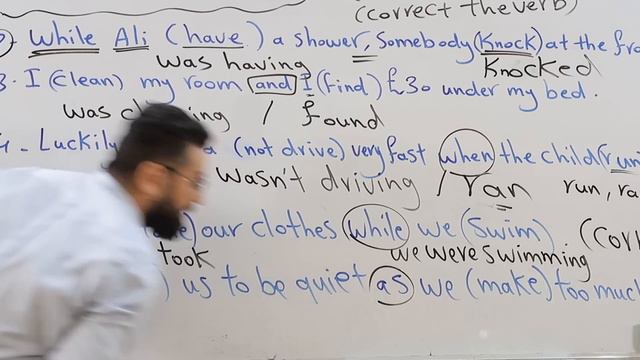 (correct the verb)
While Ali (have) a shower, Somebody (Knock) at the
was having Knocked
3. I (clean) my room and I (find) £30 under my bed.
was / found
4. Luckily (not drive) very fast when the child
wasn't driving / ran run,
our clothes while we (Swim)
took we were swimming
us to be quiet as we (make) too